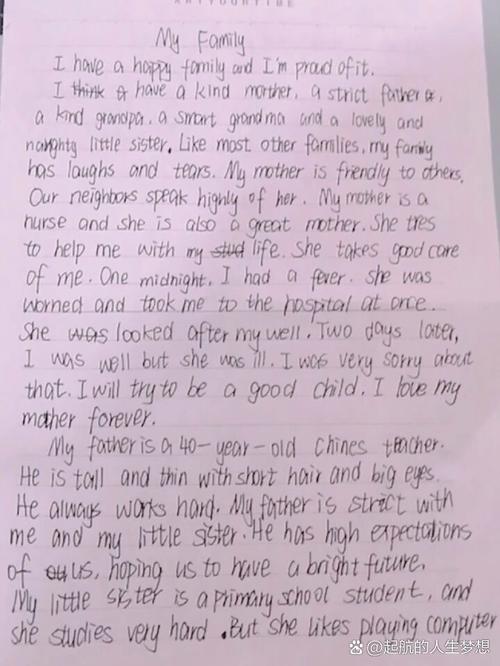 My Family
I have a happy family and I'm proud of it.
I think a have a kind morther, a strict father a,
a kind grandpa, a smart grandma and a lovely and
naughty little sister. Like most other families, my family
has laughs and tears. My mother is friendly to others.
Our neighbors speak highly of her. My mother is a
nurse and she is also a great mother. She tres
to help me with my stud life. She takes good care
of me. One midnight, I had a fever. She was
worried and took me to the hospital at once.
She was looked after my well. Two days later,
I was well but she was ill. I was very sorry about
that. I will try to be a good child. I love my
mother forever.
My father is a 40-year-old Chines teacher.
He is tall and thin with short hair and big eyes.
He always works hard. My father is strict with
me and my little sister. He has high expectations
of ou us, hoping us to have a bright future.
My little sister is a primary school student, and
she studies very hard. But she likes playing computer
@起航的人生梦想